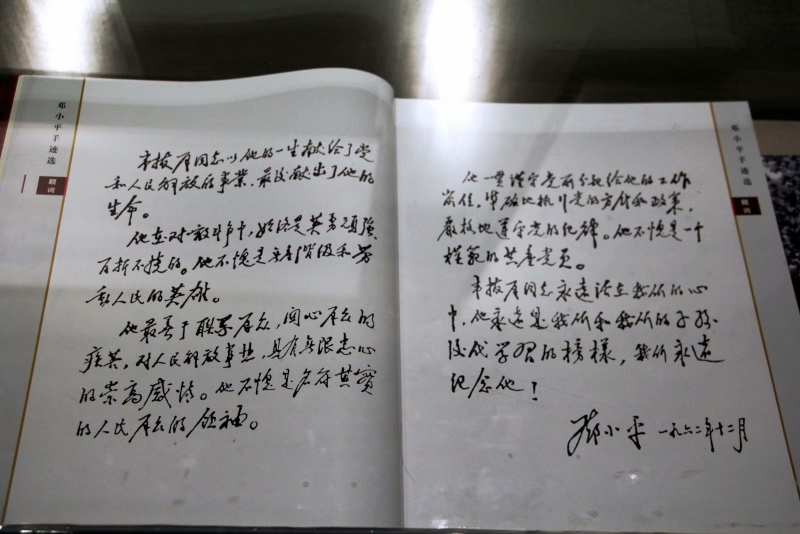 邓小平手迹选
题词
韦拔群同志以他的一生献给了党
和人民解放的事业，最后献出了他的
生命。
他在对敌斗争中，始终是英勇顽强
百折不挠的。他不愧是无产阶级和劳
动人民的英雄。
他最善于联系群众，关心群众的
疾苦，对人民解放事业，具有无限忠心
的崇高感情。他不愧是名符其实
的人民群众的领袖。
他一贯谨守党所分配给他的工作
岗位，准确地执行党的方针和政策，
严格地遵守党的纪律。他不愧是一个
模范的共产党员。
韦拔群同志永远活在我们的心
中，他永远是我们和我们的子孙
后代学习的榜样，我们永远
纪念他！
邓小平 一九六二年十二月
邓小平手迹选
题词